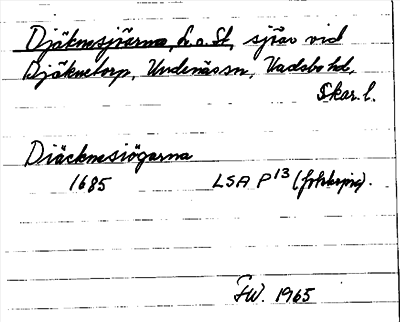 Djäknesjöarna, L. o. St., sjöar vid
Djäknetorp, Undenäs sn, Vadsbo hd,
Skar. l.
Diäcknesiögarna
1685 LSA P 13 (forklaring).
FW. 1965